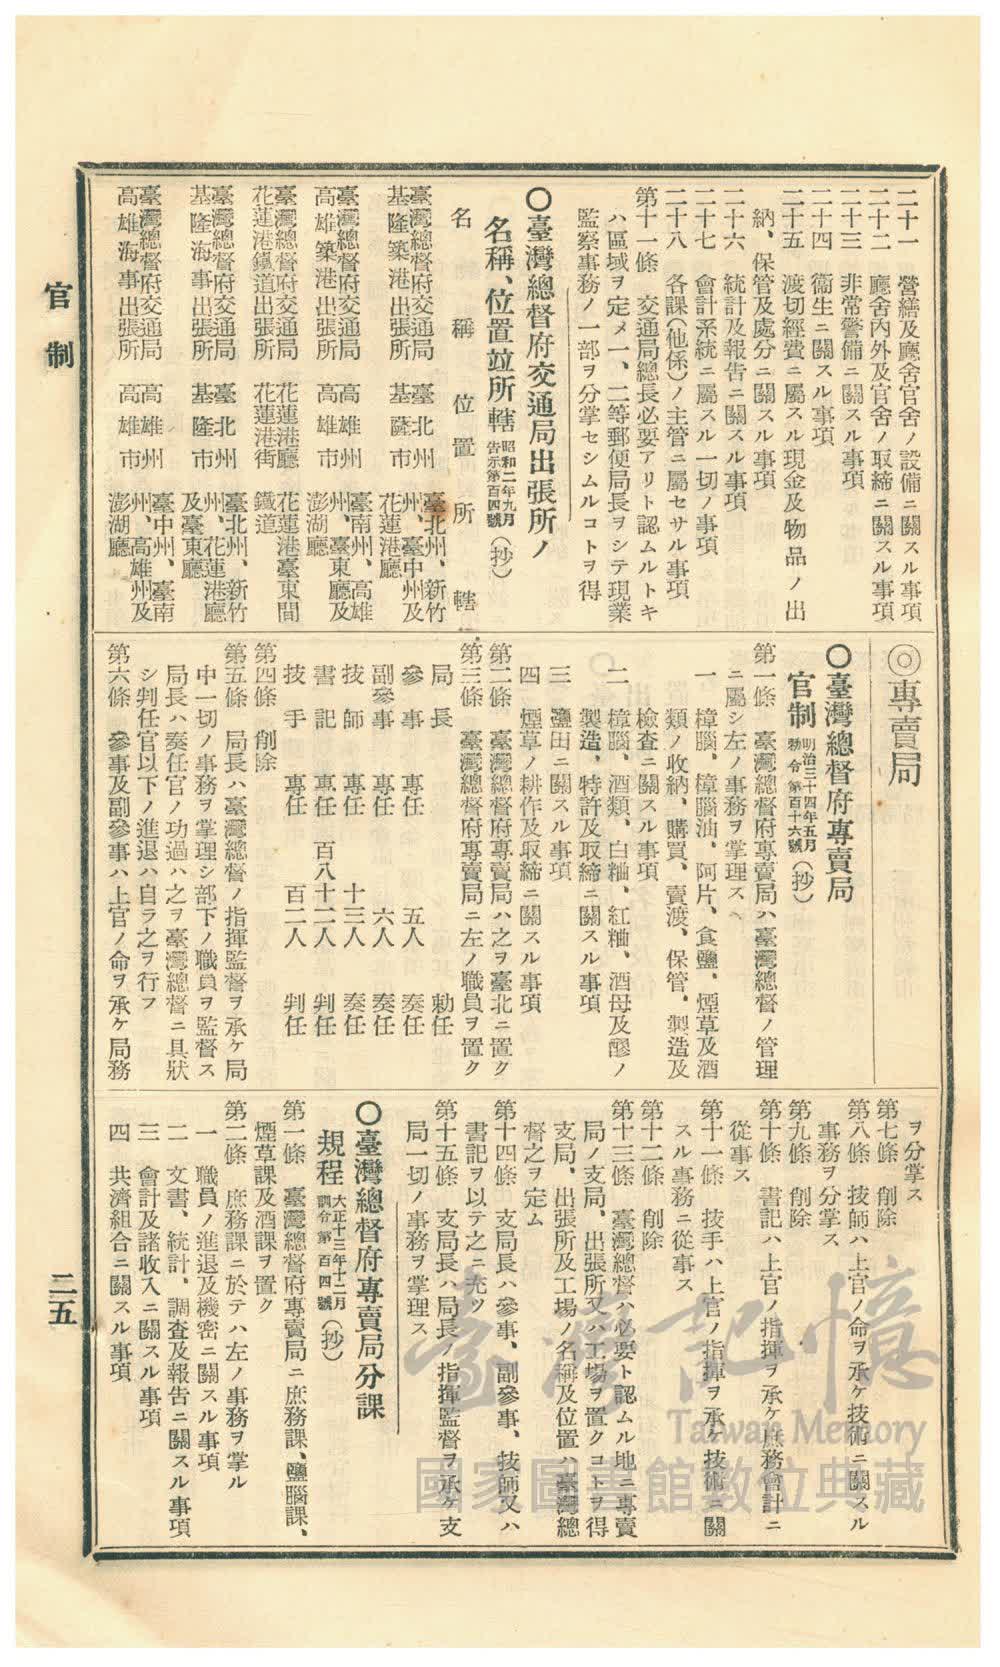 二十一　營繕及廳舍官舍ノ設備ニ關スル事項
二十二　廳舍內外及官舍ノ取締ニ關スル事項
二十三　非常警備ニ關スル事項
二十四　衞生ニ關スル事項
二十五　渡切經費ニ屬スル現金及物品ノ出
納、保管及處分ニ關スル事項
二十六　統計及報告ニ關スル事項
二十七　會計系統ニ屬スル一切ノ事項
二十八　各課(他係)ノ主管ニ屬セサル事項
第十一條　交通局總長必要アリト認ムルトキ
ハ區域ヲ定メ一、二等郵便局長ヲシテ現業
監察事務ノ一部ヲ分掌セシムルコトヲ得
〇臺灣總督府交通局出張所ノ
名稱、位置竝所轄 昭和二年九月告示第百四號(抄)
名稱　位置　所轄
臺灣總督府交通局基隆築港出張所　臺北州基隆市　臺北州、新竹州、臺中州及花蓮港廳
臺灣總督府交通局高雄築港出張所　高雄州高雄市　臺南州、高雄州、臺東廳及澎湖廳
臺灣總督府交通局花蓮港鐵道出張所　花蓮港廳花蓮港街　花蓮港臺東間鐵道
臺灣總督府交通局基隆海事出張所　臺北州基隆市　臺北州、新竹州、花蓮港廳及臺東廳
臺灣總督府交通局高雄海事出張所　高雄州高雄市　臺中州、臺南州、高雄州及澎湖廳
◎專賣局
〇臺灣總督府專賣局
官制 明治三十四年五月勅令第百十六號(抄)
第一條　臺灣總督府專賣局ハ臺灣總督ノ管理
ニ屬シ左ノ事務ヲ掌理ス
一　樟腦、樟腦油、阿片、食鹽、煙草及酒
類ノ收納、購買、賣渡、保管、製造及
檢查ニ關スル事項
二　樟腦、酒類、白粬、紅粬、酒母及醪ノ
製造、特許及取締ニ關スル事項
三　鹽田ニ關スル事項
四　煙草ノ耕作及取締ニ關スル事項
第二條　臺灣總督府專賣局ハ之ヲ臺北ニ置ク
第三條　臺灣總督府專賣局ニ左ノ職員ヲ置ク
局長　勅任
參事　專任　五人　奏任
副參事　專任　六人　奏任
技師　專任　十三人　奏任
書記　專任　百八十二人　判任
技手　專任　百二人　判任
第四條　削除
第五條　局長ハ臺灣總督ノ指揮監督ヲ承ケ局
中一切ノ事務ヲ掌理シ部下ノ職員ヲ監督ス
局長ハ奏任官ノ功過ハ之ヲ臺灣總督ニ具狀
シ判任官以下ノ進退ハ自ラ之ヲ行フ
第六條　參事及副參事ハ上官ノ命ヲ承ケ局務
ヲ分掌ス
第七條　削除
第八條　技師ハ上官ノ命ヲ承ケ技術ニ關スル
事務ヲ分掌ス
第九條　削除
第十條　書記ハ上官ノ指揮ヲ承ケ庶務會計ニ
從事ス
第十一條　技手ハ上官ノ指揮ヲ承ケ技術ニ關
スル事務ニ從事ス
第十二條　削除
第十三條　臺灣總督ハ必要ト認ムル地ニ專賣
局ノ支局、出張所又ハ工場ヲ置クコトヲ得
支局、出張所及工場ノ名稱及位置ハ臺灣總
督之ヲ定ム
第十四條　支局長ハ參事、副參事、技師又ハ
書記ヲ以テ之ニ充ツ
第十五條　支局長ハ局長ノ指揮監督ヲ承ケ支
局一切ノ事務ヲ掌理ス
〇臺灣總督府專賣局分課
規程 大正十三年十二月訓令第百四號(抄)
第一條　臺灣總督府專賣局ニ庶務課、鹽腦課、
煙草課及酒課ヲ置ク
第二條　庶務課ニ於テハ左ノ事務ヲ掌ル
一　職員ノ進退及機密ニ關スル事項
二　文書、統計、調查及報告ニ關スル事項
三　會計及諸收入ニ關スル事項
四　共濟組合ニ關スル事項
官制
二五
臺灣記憶
Taiwan Memory
國家圖書館數位典藏